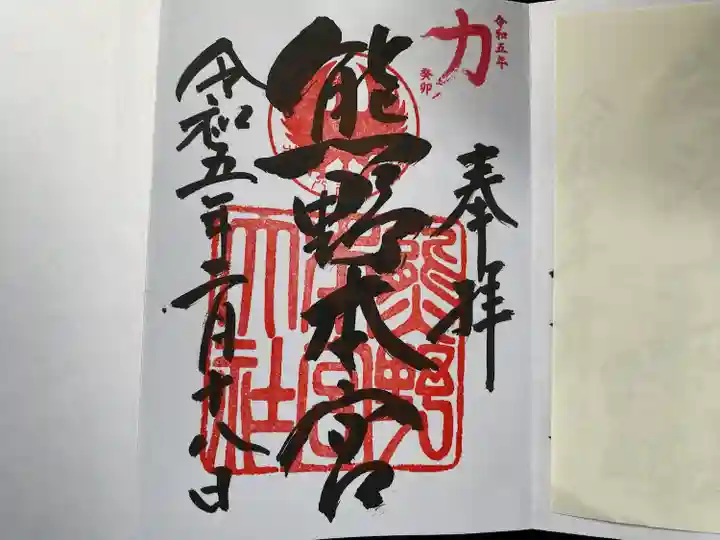 令和五年
癸卯
力
奉拝
熊野本宮
熊野本宮大社
令和五年二月十八日